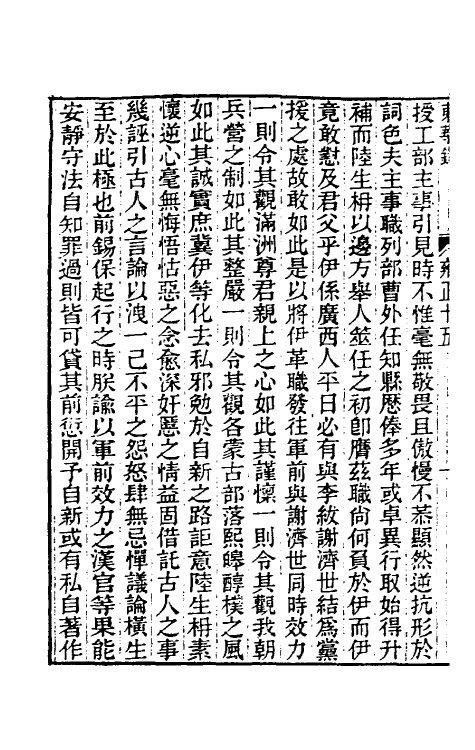 東華錄 雍正十五
授工部主事引見時不惟毫無敬畏且傲慢不恭顯然逆抗形於
詞色夫主事職列部曹外任知縣歷俸多年或卓異行取始得升
補而陸生枏以邊方舉人筮任之初卽膺茲職尙何負於伊而伊
竟敢懟及君父乎伊係廣西人平日必有與李紱謝濟世結爲黨
援之處故敢如此是以將伊革職發往軍前與謝濟世同時效力
一則令其觀滿洲尊君親上之心如此其謹懍一則令其觀我朝
兵營之制如此其整嚴一則令其觀各蒙古部落熙皞醇樸之風
如此其誠實庶冀伊等化去私邪勉於自新之路詎意陸生枏素
懷逆心毫無悔悟怙惡之念愈深奸慝之情益固借託古人之事
幾誣引古人之言論以洩一己不平之怨怒肆無忌憚議論橫生
至於此極也前錫保起行之時朕諭以軍前效力之漢官等果能
安靜守法自知罪過則皆可貸其前愆開予自新或有私自著作